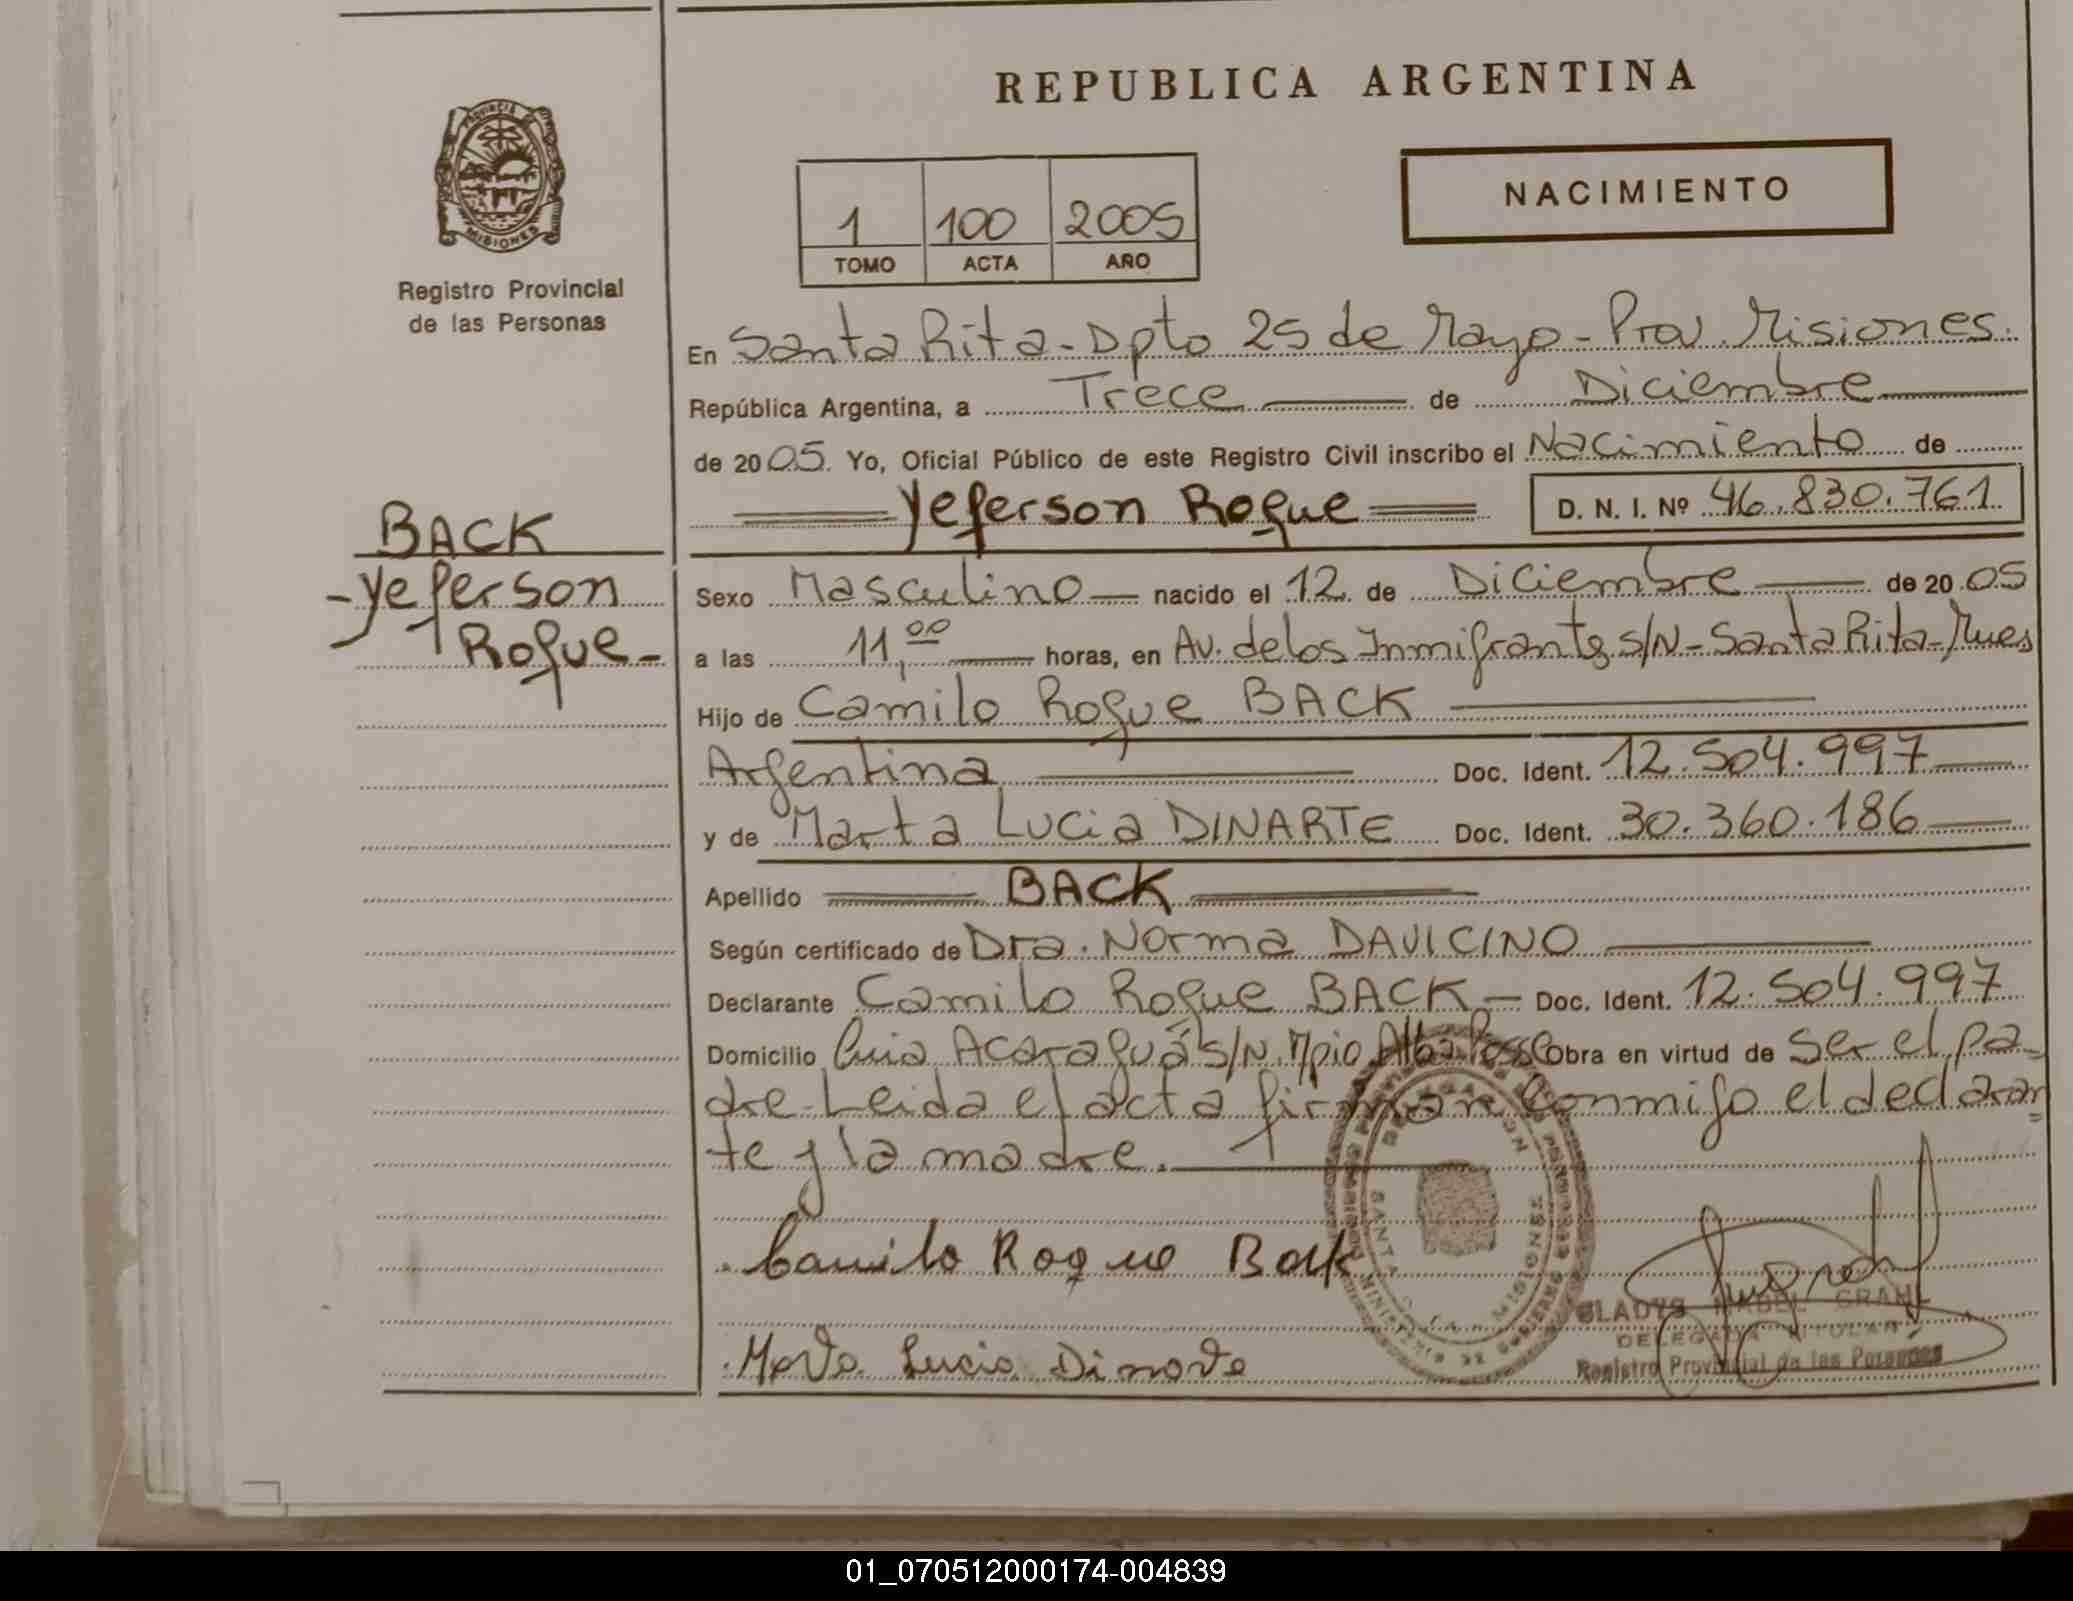 REPUBLICA ARGENTINA
PROVINCIA DE
MISIONES
Registro Provincial
de las Personas
1 100 2005
TOMO ACTA AÑO
NACIMIENTO
En Santa Rita - Dpto 25 de Mayo - Prov. Misiones.
República Argentina, a Trece de Diciembre
de 2005. Yo, Oficial Público de este Registro Civil inscribo el Nacimiento de
Yeferson Roque D. N. I. Nº 46.830.761
BACK
- Yeferson
Roque -
Sexo Masculino nacido el 12 de Diciembre de 2005
a las 11,00 horas, en Av. de los Inmigrantes S/N - Santa Rita - Mnes
Hijo de Camilo Roque BACK
Argentina Doc. Ident. 12.504.997
y de Marta Lucia DINARTE Doc. Ident. 30.360.186
Apellido BACK
Según certificado de Dra. Norma DAVICINO
Declarante Camilo Roque BACK - Doc. Ident. 12.504.997
Domicilio Acaraguá S/N Mpio Alba Posse Obra en virtud de Ser el pa-
dre - Leida el acta firman conmigo el declaran=
te y la madre.
Camilo Roque Back
Marta Lucia Dinarte
SANTA
MINISTERIO DE GOBIERNO
GLADYS MABEL
DELEGADA TITULAR
Registro Provincial de las Personas
01_070512000174-004839